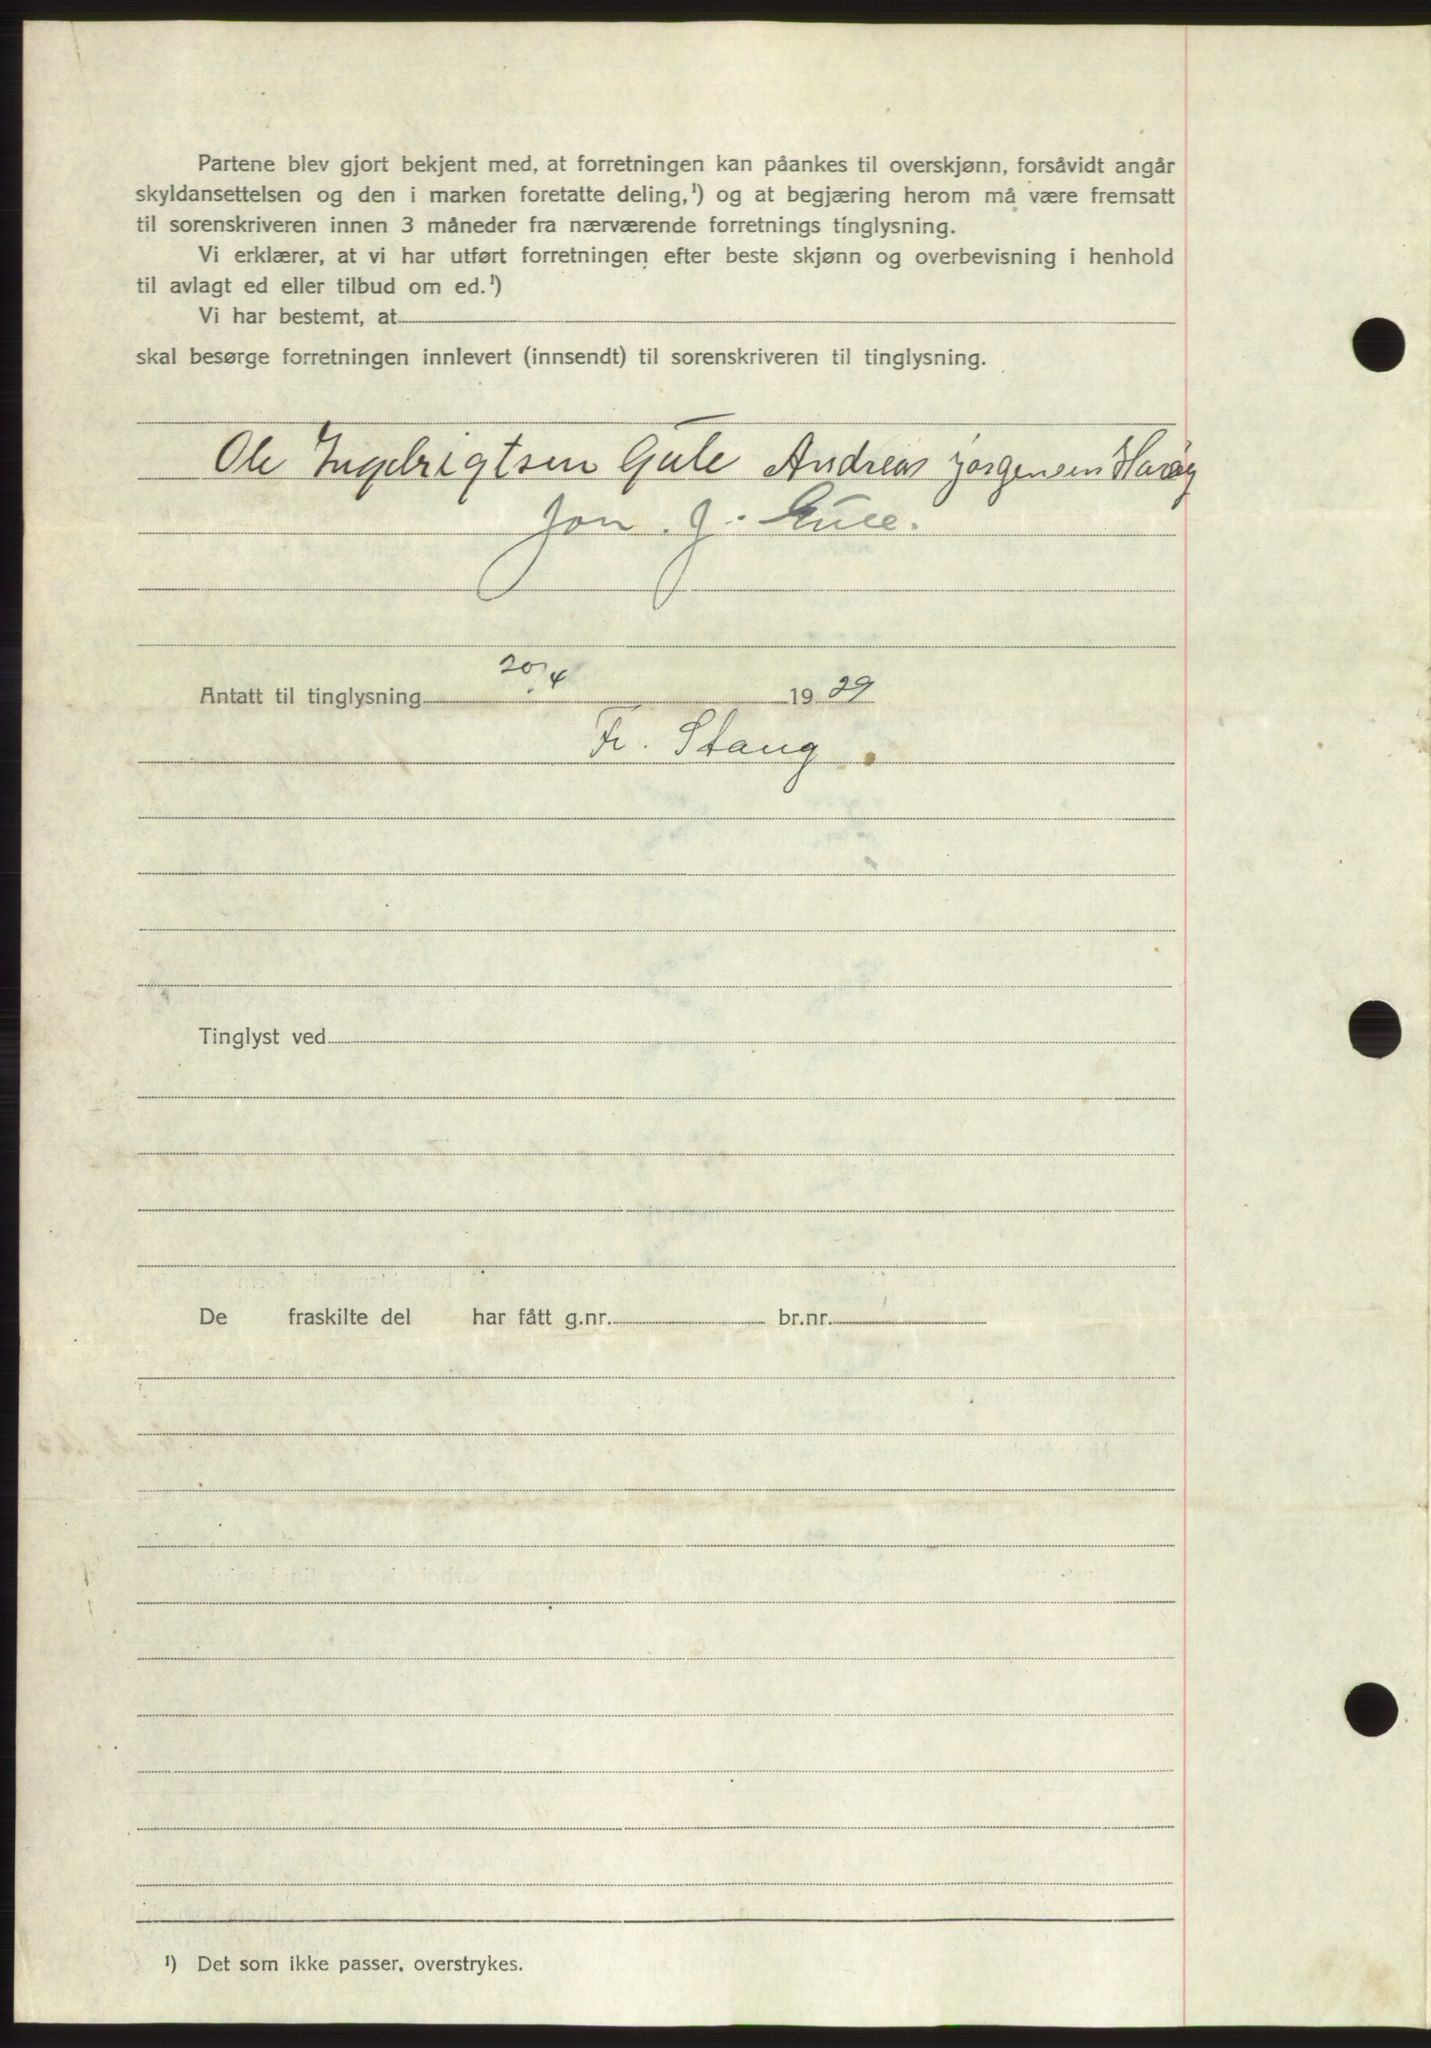 Partene blev gjort bekjent med, at forretningen kan påankes til overskjønn, forsåvidt angår
skyldansettelsen og den i marken foretatte deling,¹) og at begjæring herom må være fremsatt
til sorenskriveren innen 3 måneder fra nærværende forretnings tinglysning.
Vi erklærer, at vi har utført forretningen efter beste skjønn og overbevisning i henhold
til avlagt ed eller tilbud om ed.¹)
Vi har bestemt, at
skal besørge forretningen innlevert (innsendt) til sorenskriveren til tinglysning.
Ole Ingebrigtsen Gule Andreas Jørgensen
Jon. J. Gule.
Antatt til tinglysning 20/4 19 39
Fr. Stang
Tinglyst ved
De fraskilte del har fått g.nr. br.nr.
¹) Det som ikke passer, overstrykes.